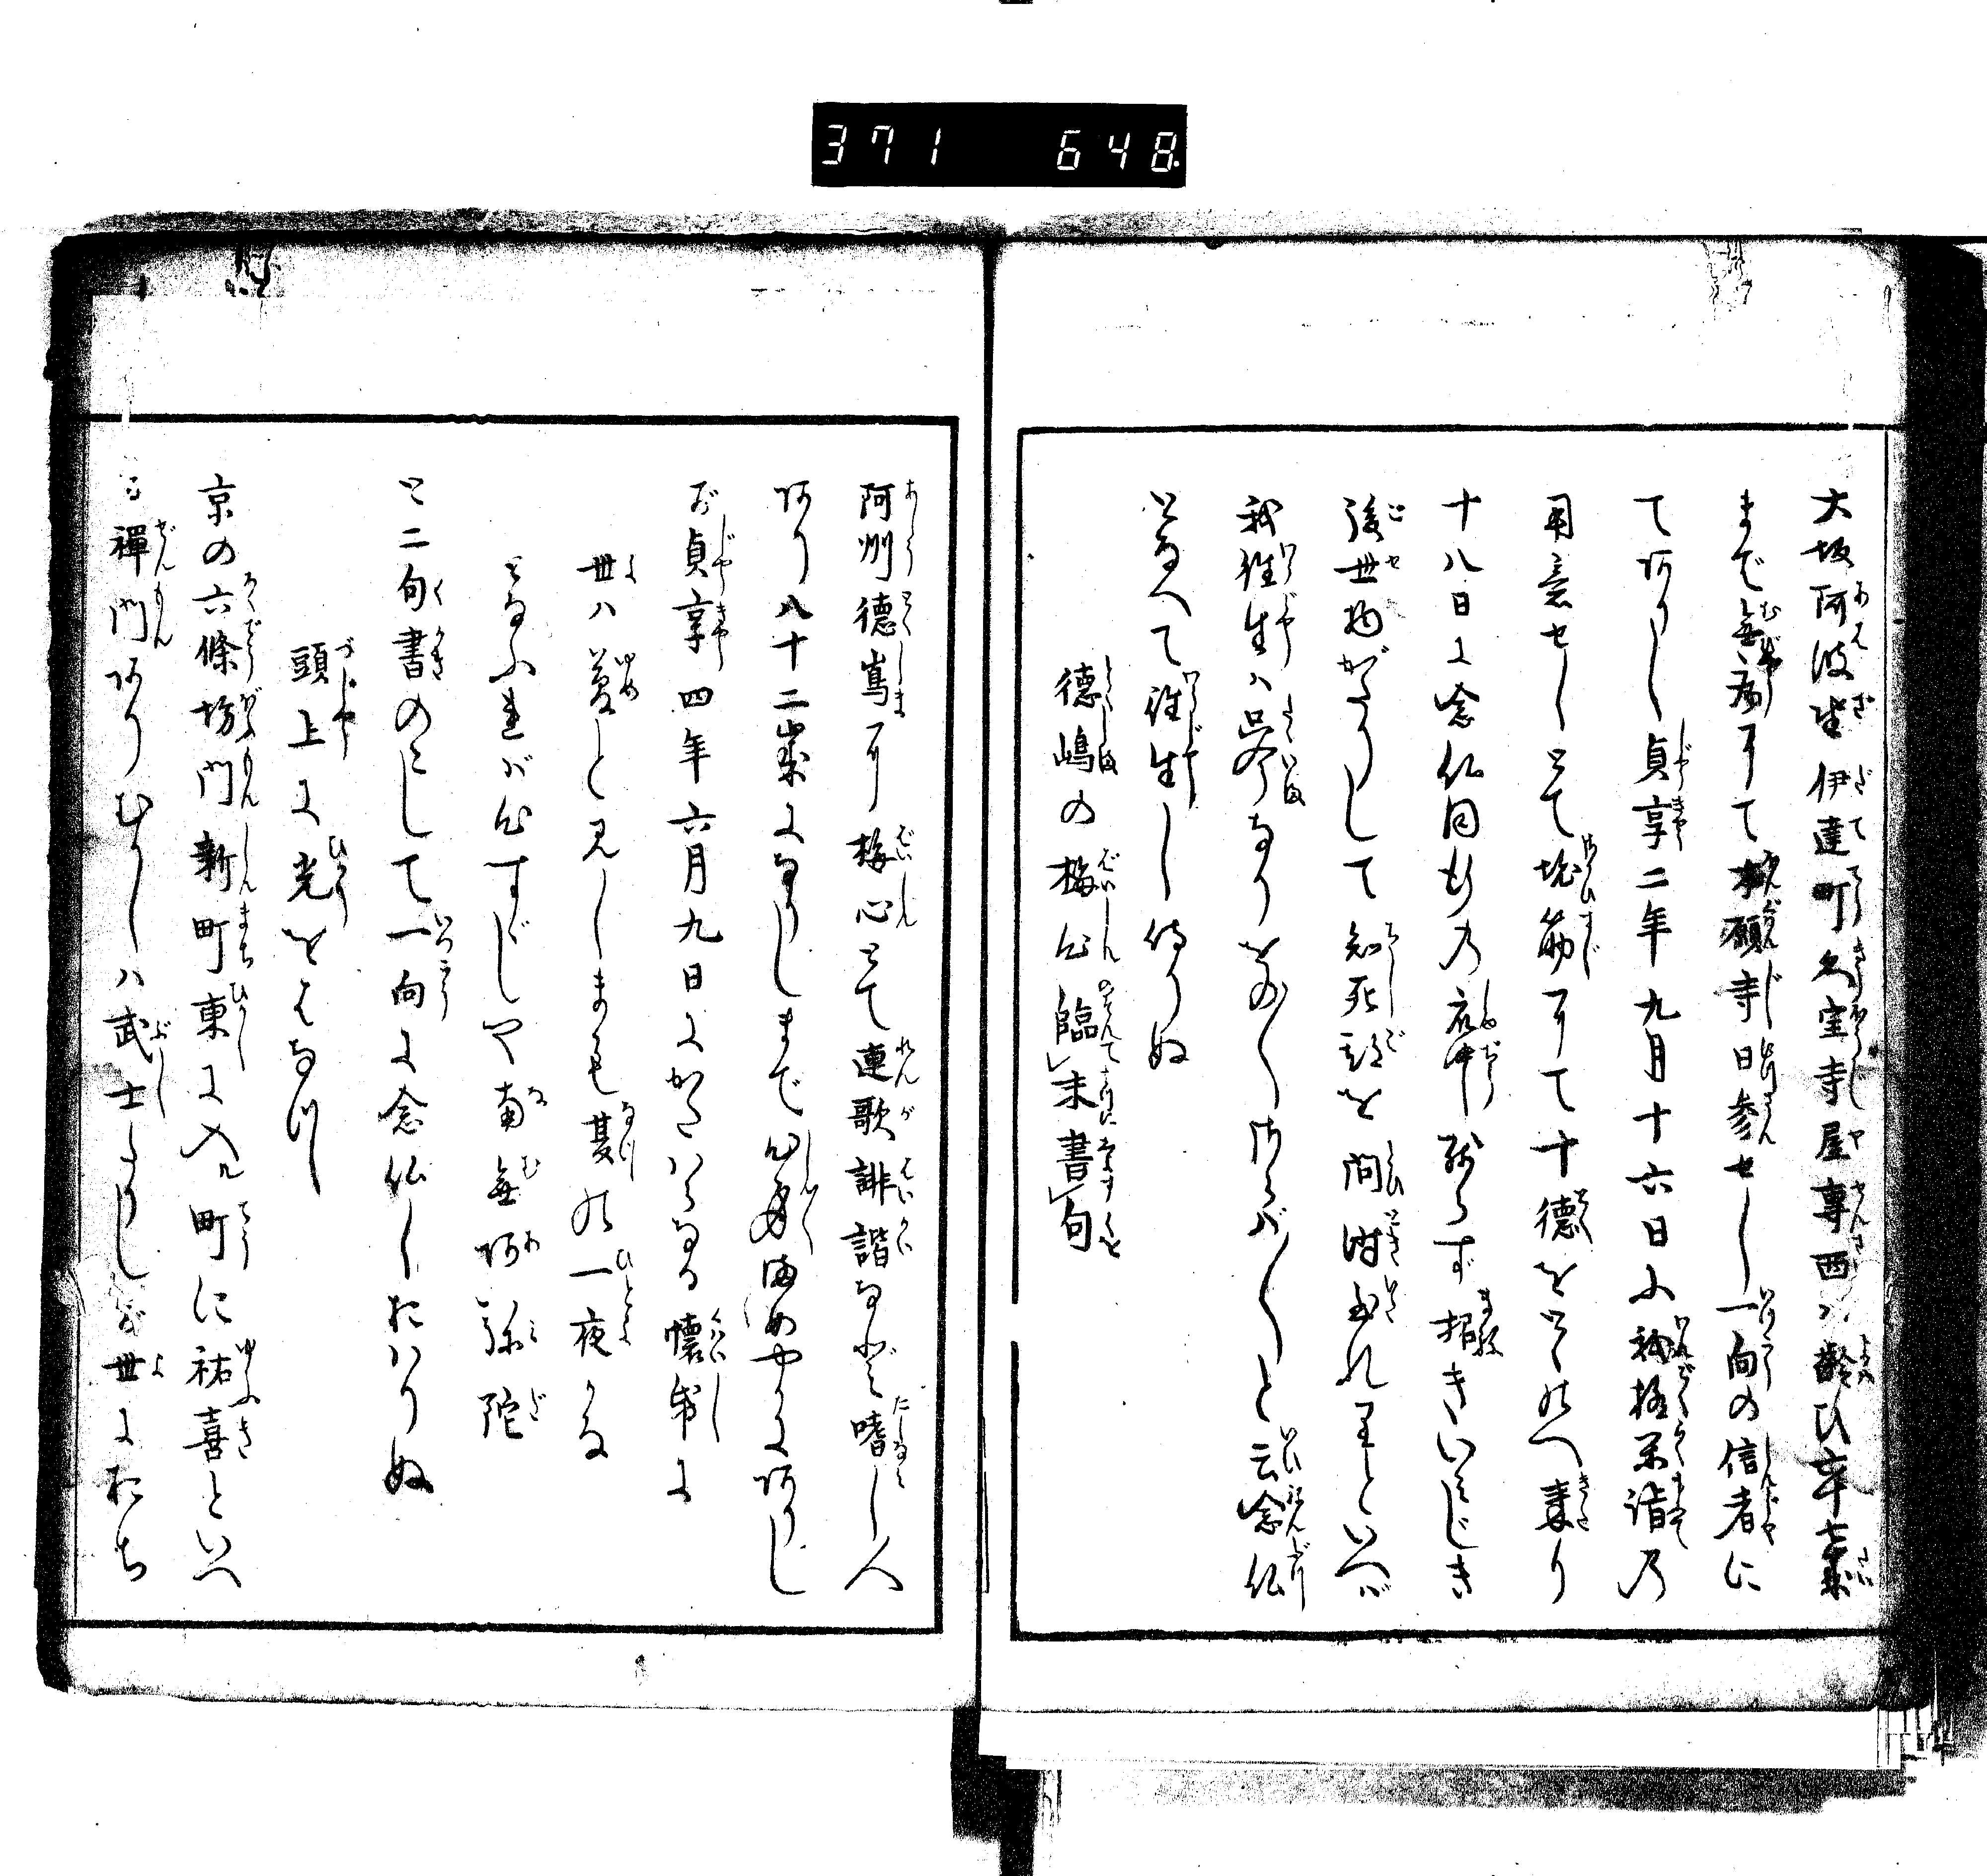 371 648
大坂阿波座伊達町久宝寺屋専西ハ齢ひ七十七歳
まで無病にて本願寺日参せし一向の信者に
てありし貞享二年九月十六日に
用意せしとて筋にて十徳をとゝのへ来り
十八日に念仏同行の衆中残らず招きいみじき
後世物がたりして知死期を問時
我往生ハ只今なりさらバ／＼と云念仏
となへて往生し侍りぬ
徳嶋の梅心臨末書句
阿州徳嶌に梅心とて連歌誹諧など嗜し人
あり八十二歳になりしまで心身まめやかにありし
が貞享四年六月九日にかたハらなる懐帋に
世ハ夢と見しまも夏の一夜かな
となふれバ心すゞしや南無阿弥陀
と二句書のこして一向に念仏しおハりぬ
頭上に光をはなつ
京の六條坊門新町東に入ル町に祐喜といへ
る禅門ありむかしハ武士たりしが世におち